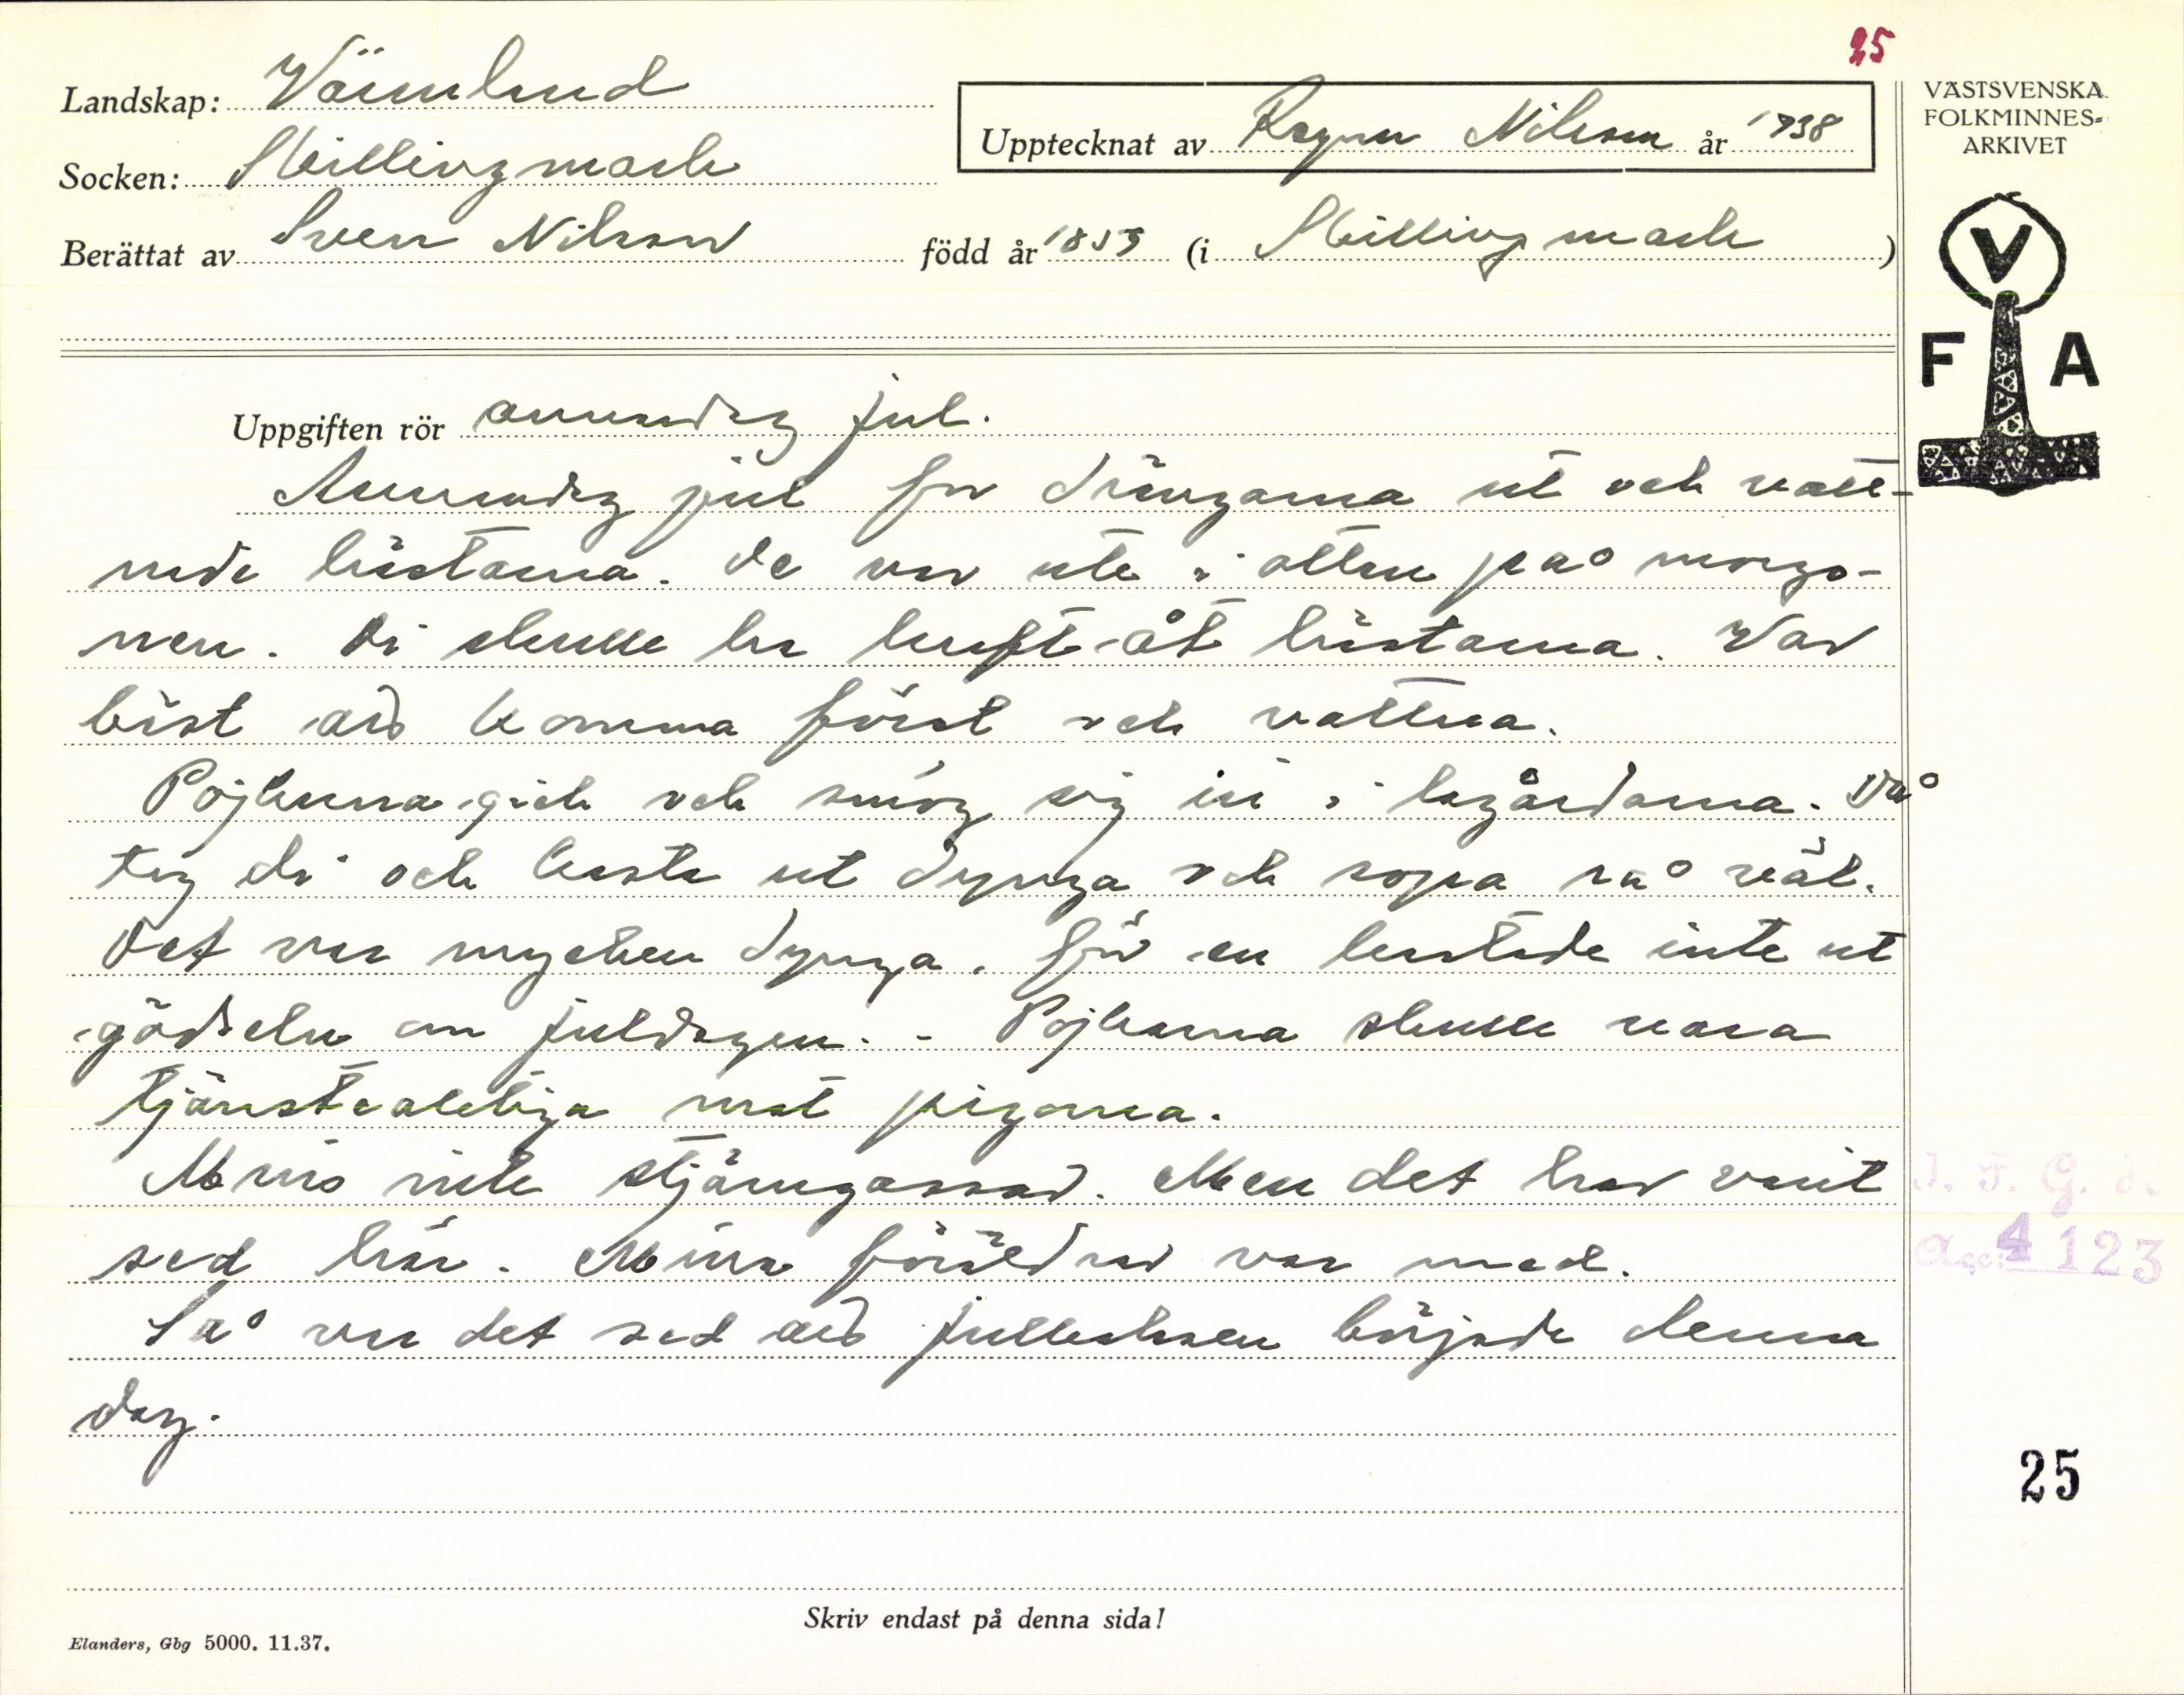 25
Landskap: Värmland
Socken: Skillingmark
Berättat av Sven Nilsson född år 1859 (i Skillingmark)
Upptecknat av Ragnar Nilsson år 1938
VÄSTSVENSKA
FOLKMINNES=
ARKIVET
V
F A
Uppgiften rör annandag jul.
Annandag jul for drängarna ut och vatt-
nade hästarna. De var ute i ottan på morgo-
nen. Di skulle ha luft åt hästarna. Var
bäst att komma först och vattna.
Pojkarna gick och smög sig in i lagårdarna. Då
tog di och kasta ut dynga och sopa så väl.
Det var mycken dynga, för en kastade inte ut
gödseln om juldagen. - Pojkarna skulle vara
tjänstaktiga mot pigorna.
Mins inte stjärngossar. Men det har varit
sed här. Mina föräldrar var med.
Så var det sed att jullekasen började denna
dag.
I. F. G. s.
Acc: 4123
25
Skriv endast på denna sida!
Elanders, Gbg 5000. 11.37.